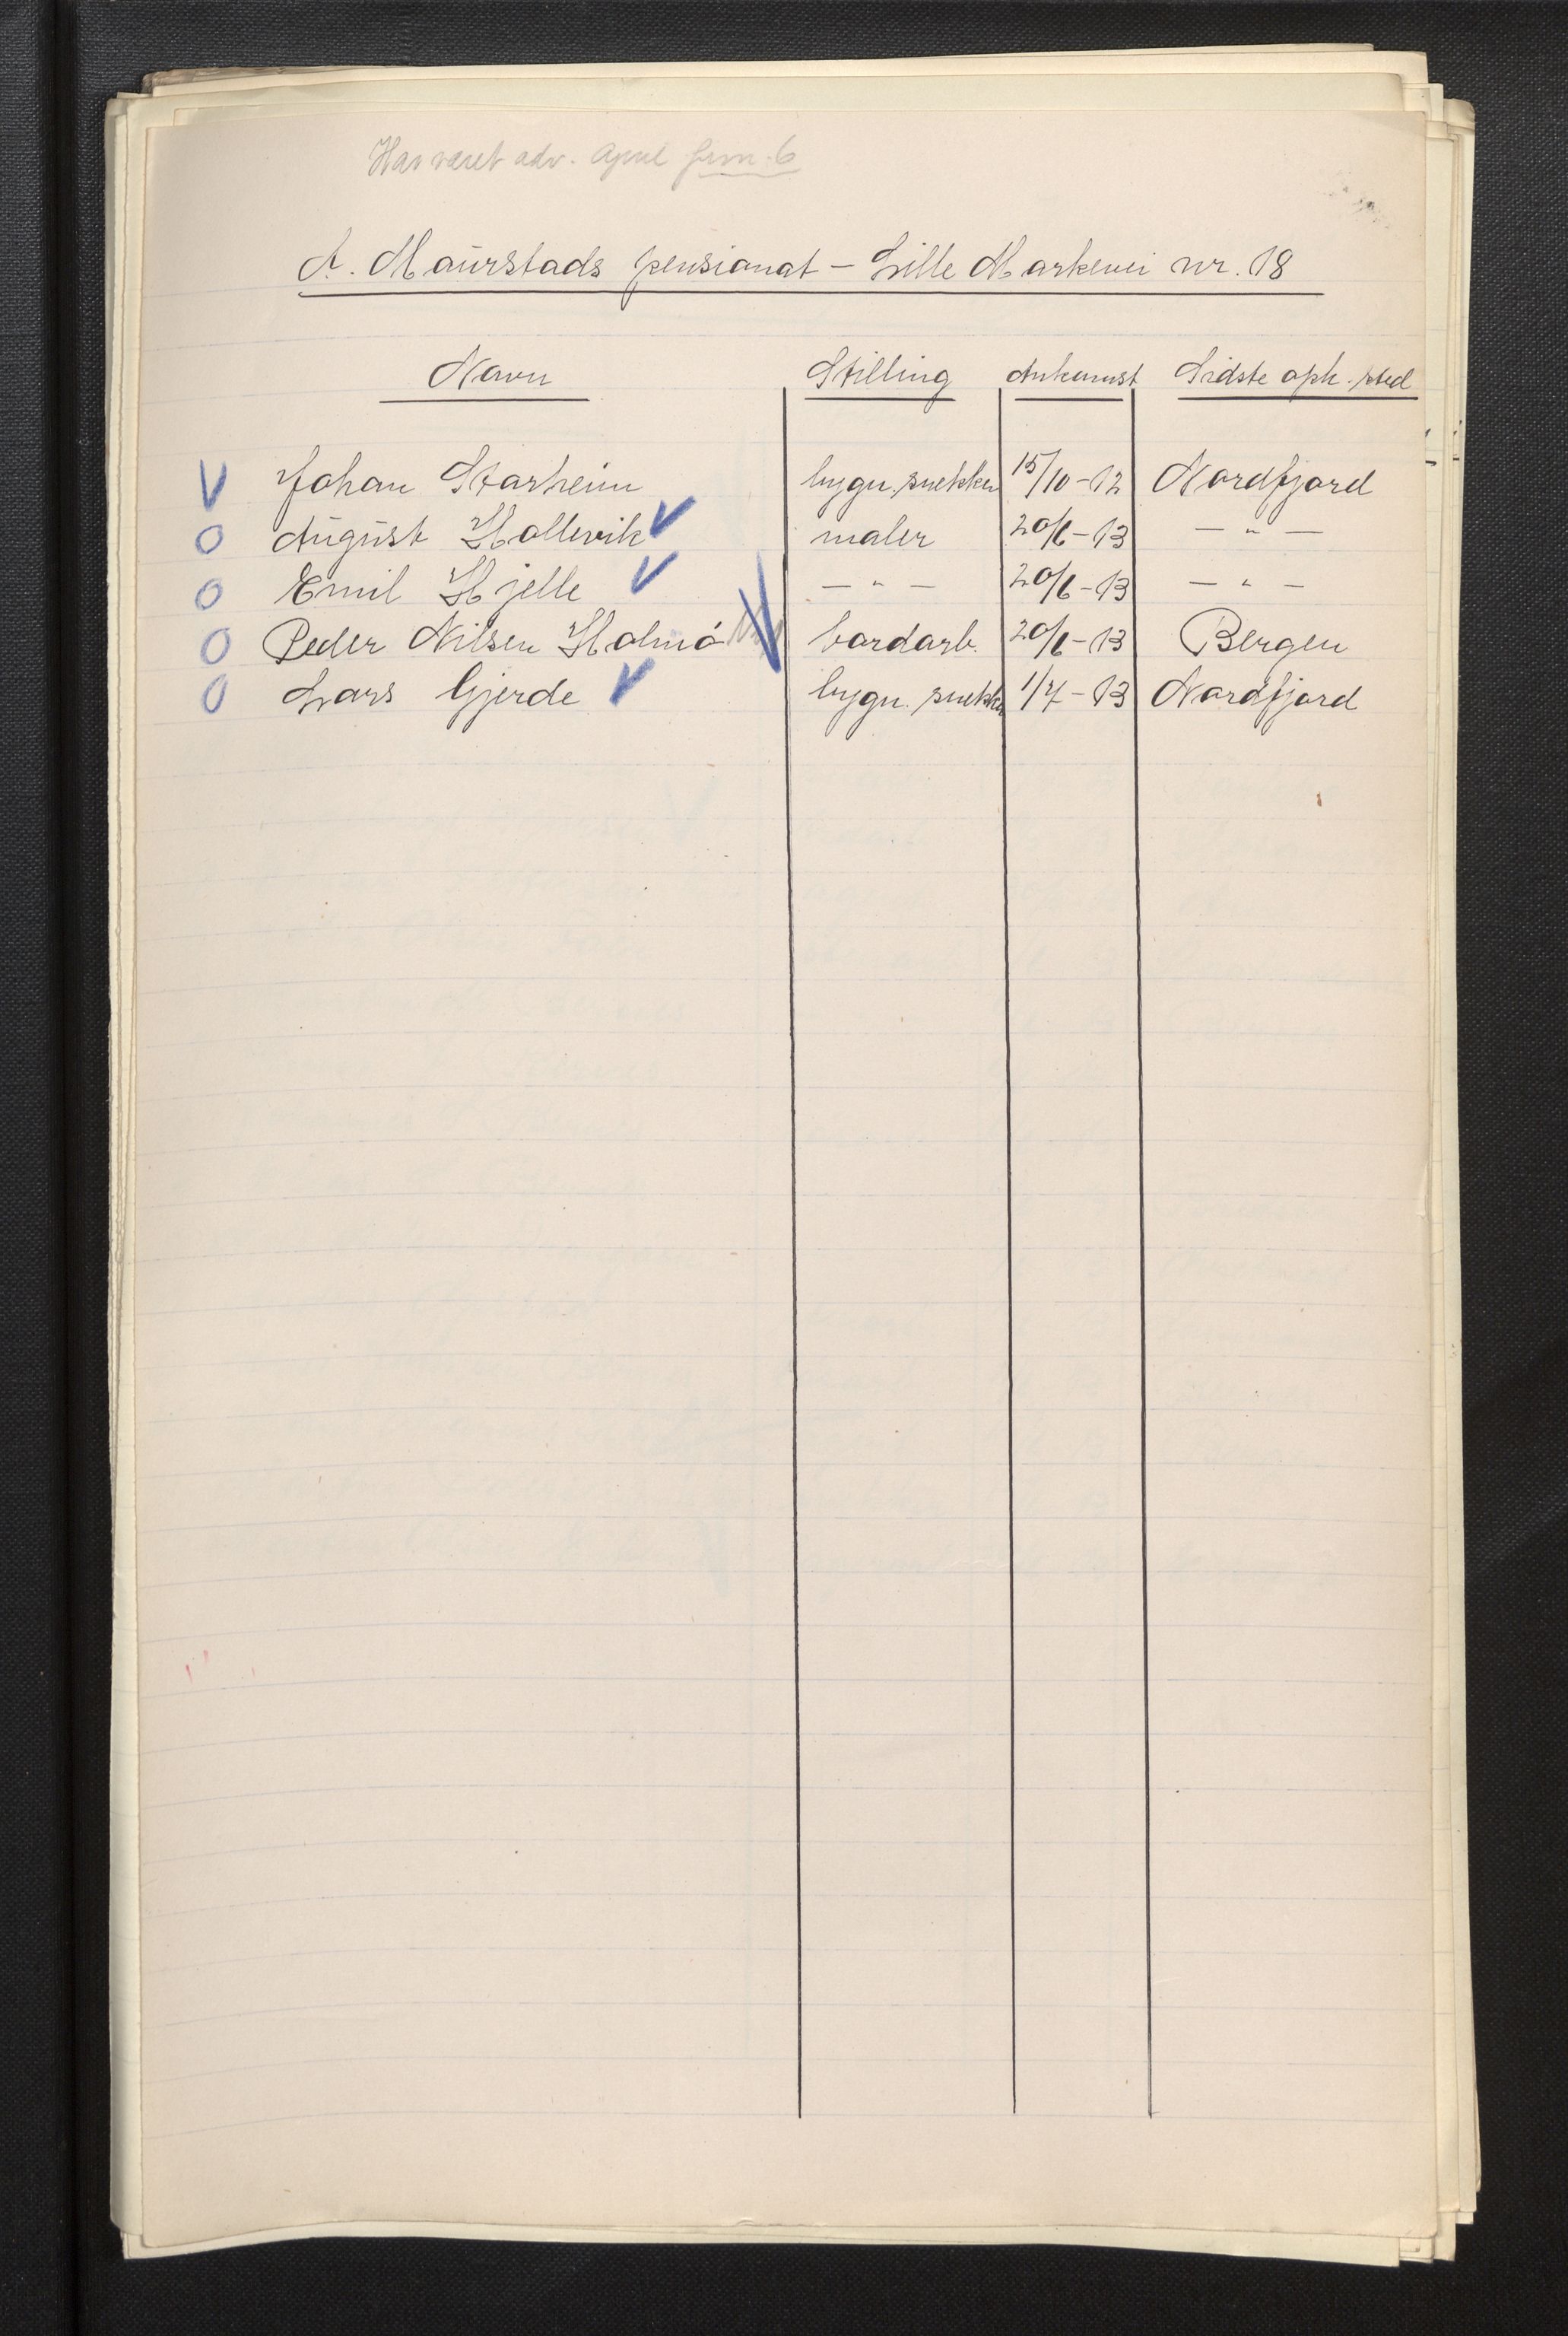 Har været adv.
A. Maurstads pensionat – Lille Markevei nr. 18
Navn Stilling Ankomst Sidste oph. sted
V Johan Starheim bygn. snekker 15/10-12 Nordfjord
O August Hollevik V maler 20/6-13 — " —
O Emil Hjelle V — " — 20/6-13 — " —
O Peder Nilsen Holmø V bordarb. 20/6-13 Bergen
O Lars Gjerde V bygn. snekker 1/7-13 Nordfjord